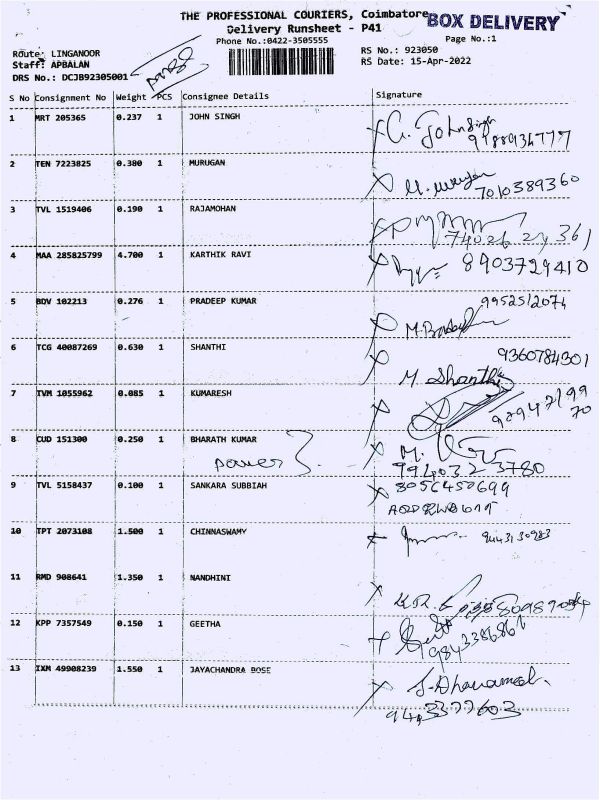 THE PROFESSIONAL COURIERS, Coimbatore
BOX DELIVERY
Delivery Runsheet - P41
Phone No.:0422-3505555
Page No.:1
Route: LINGANOOR
RS No.: 923050
Staff: APBALAN
RS Date: 15-Apr-2022
DRS No.: DCJB92305001
S No Consignment No Weight PCS Consignee Details Signature
1 MRT 205365 0.237 1 JOHN SINGH
G. John Singh
2 TEN 7223825 0.380 1 MURUGAN
M. Murugan
7010389360
3 TVL 1519406 0.190 1 RAJAMOHAN
4 MAA 285825799 4.700 1 KARTHIK RAVI
8903729410
5 BDV 102213 0.276 1 PRADEEP KUMAR
9952512074
6 TCG 40087269 0.630 1 SHANTHI
9360784301
M. Shanthi
7 TVM 1055962 0.085 1 KUMARESH
8 CUD 151300 0.250 1 BHARATH KUMAR
power
9940323780
9 TVL 5158437 0.100 1 SANKARA SUBBIAH
8056450699
10 TPT 2073108 1.500 1 CHINNASWAMY
9443130983
11 RMD 908641 1.350 1 NANDHINI
12 KPP 7357549 0.150 1 GEETHA
13 IXM 49908239 1.550 1 JAYACHANDRA BOSE